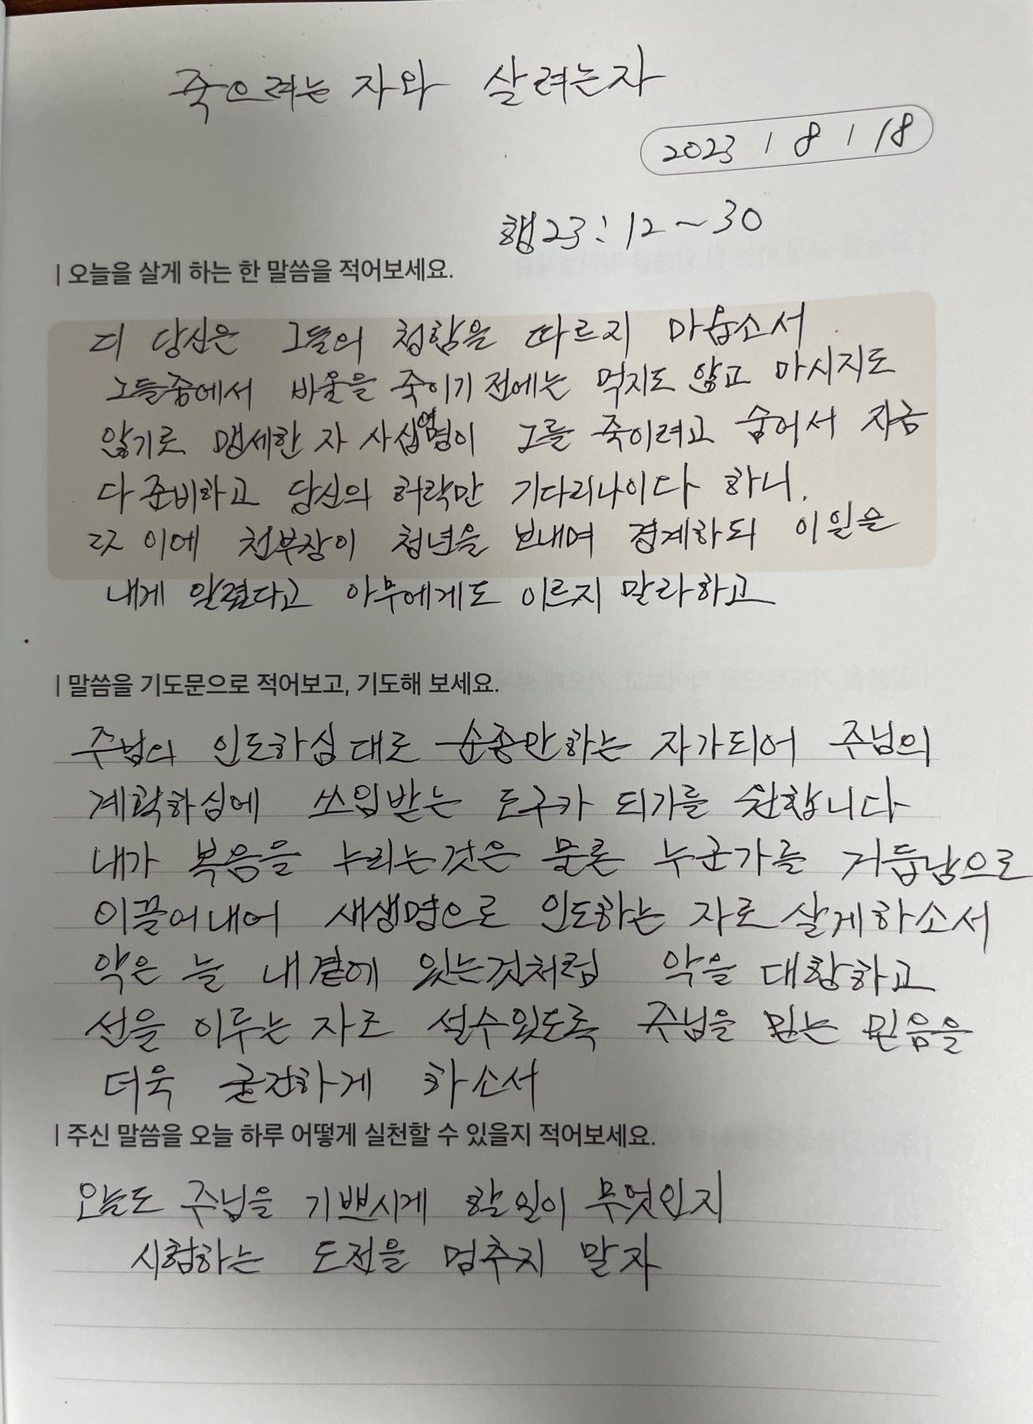 죽으려는 자와 살려는자
2023 / 8 / 18
행23:12~30
| 오늘을 살게 하는 한 말씀을 적어보세요.
21 당신은 그들의 청함을 따르지 마옵소서
그들중에서 바울을 죽이기 전에는 먹지도 않고 마시지도
않기로 맹세한 자 사십여명이 그를 죽이려고 숨어서 지금
다 준비하고 당신의 허락만 기다리나이다 하니,
22 이에 천부장이 청년을 보내며 경계하되 이일을
내게 알렸다고 아무에게도 이르지 말라하고
| 말씀을 기도문으로 적어보고, 기도해 보세요.
주님의 인도하심 대로 순종만하는 자가되어 주님의
계획하심에 쓰임받는 도구가 되기를 원합니다
내가 복음을 누리는것은 물론 누군가를 거듭남으로
이끌어내어 새생명으로 인도하는 자로 살게하소서
악은 늘 내곁에 있는것처럼 악을 대항하고
선을 이루는 자로 설수있도록 주님을 믿는 믿음을
더욱 굳건하게 하소서
| 주신 말씀을 오늘 하루 어떻게 실천할 수 있을지 적어보세요.
오늘도 주님을 기쁘시게 할 일이 무엇인지
시험하는 도전을 멈추지 말자